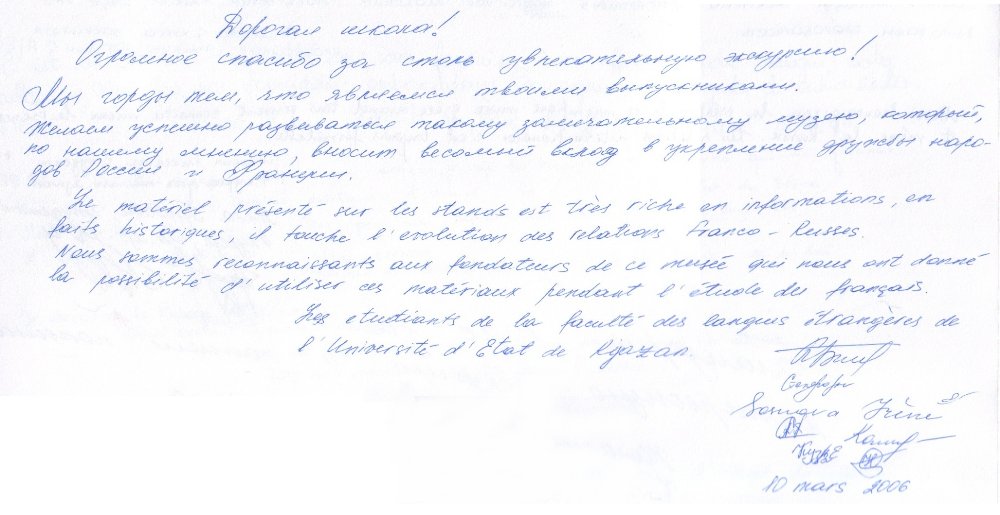 Дорогая школа!
Огромное спасибо за столь увлекательную экскурсию!
Мы горды тем, что являемся твоими выпускниками.
Желаем успешно развиваться такому замечательному музею, который,
по нашему мнению, вносит весомый вклад в укрепление дружбы наро-
дов России и Франции.
Le matériel présenté sur les stands est très riche en informations, en
faits historiques, il touche l'evolution des relations Franco-Russes.
Nous sommes reconnaissants aux fondateurs de ce musée qui nous ont donné
la possibilité d'utiliser ces matériaux pendant l'étude du français.
Les etudiants de la faculté des langues étrangères de
l'Université d'Etat de Rjazan
Irène
10 mars 2006